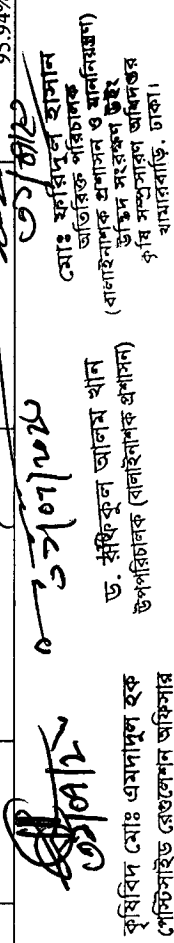 95.94%
৩১/০৭/২
কৃষিবিদ মোঃ এমদাদুল হক
পেস্টিসাইড রেগুলেশন অফিসার
৩১/০৭/২৫
ড. শফিকুল আলম খান
উপপরিচালক (বালাইনাশক প্রশাসন)
মোঃ ফরিদুল হাসান
অতিরিক্ত পরিচালক
(বালাইনাশক প্রশাসন ও মাননিয়ন্ত্রণ)
উদ্ভিদ সংরক্ষণ উইং
কৃষি সম্প্রসারণ অধিদপ্তর
খামারবাড়ি, ঢাকা।